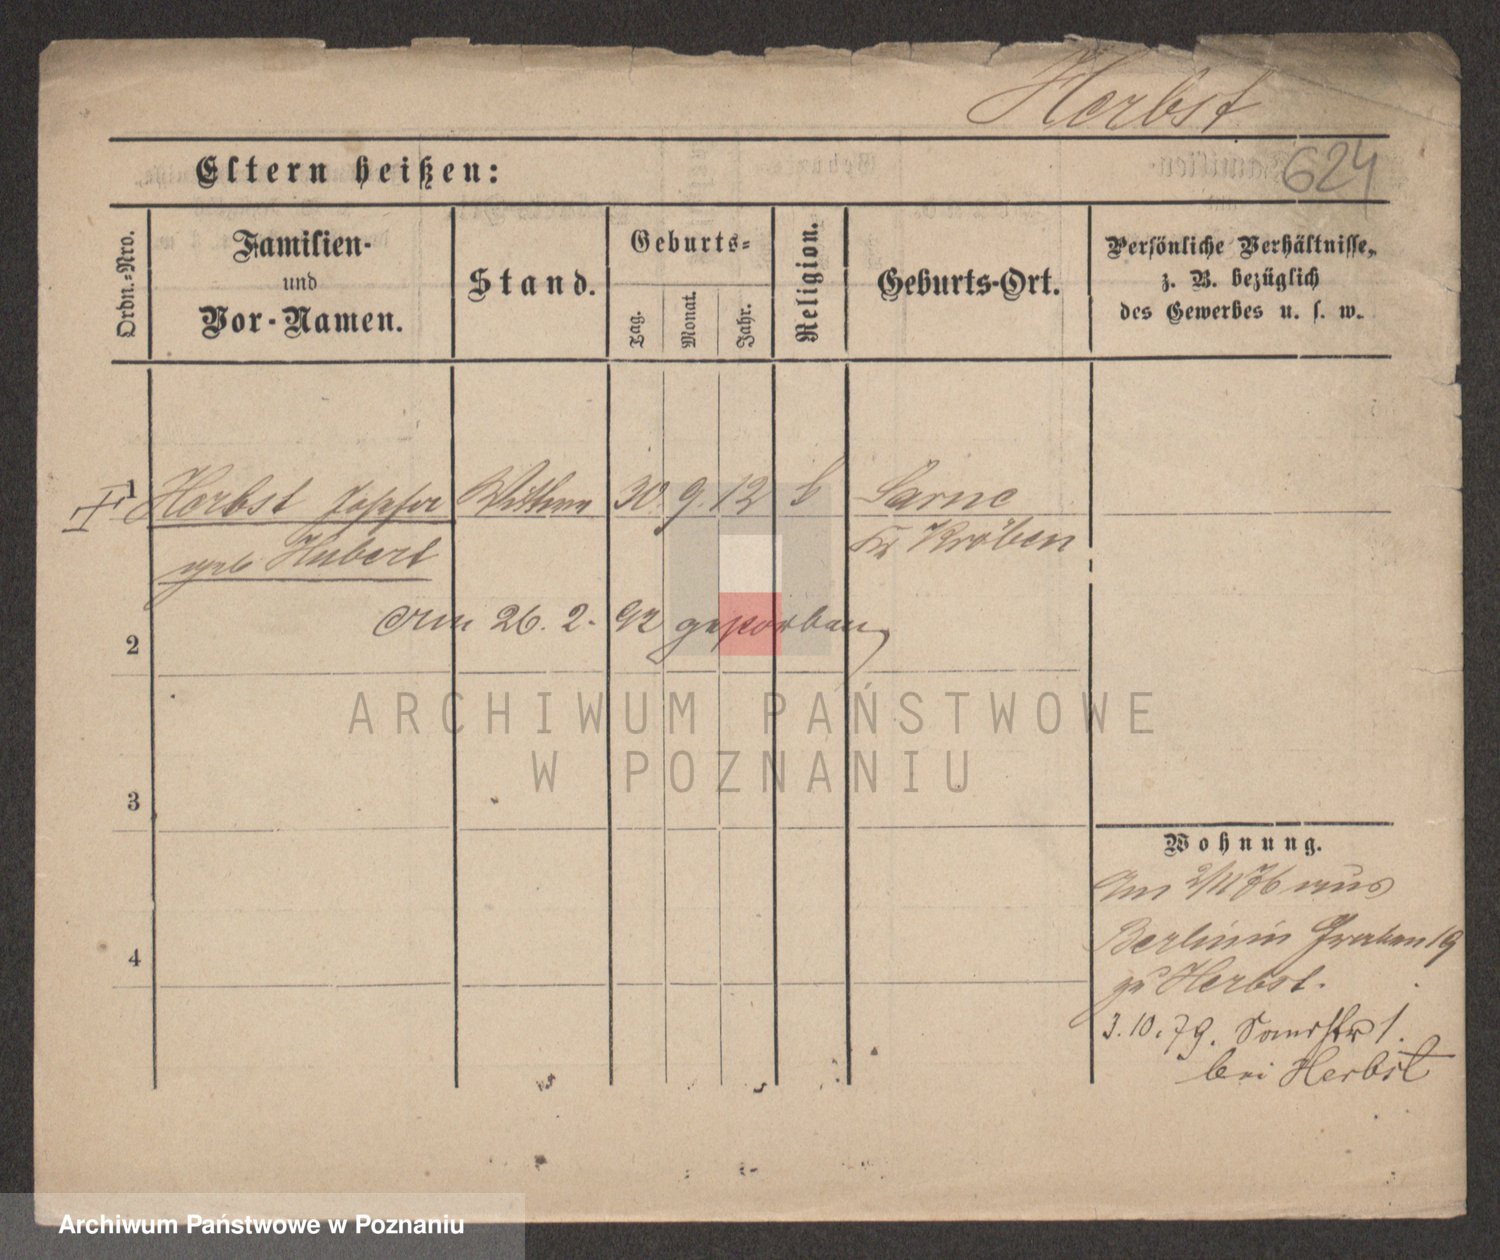 Herbst
624
Eltern heißen:
Ordn.-Nro.
Familien-
und
Vor-Namen.
Stand.
Geburts-
Tag.
Monat.
Jahr.
Religion.
Geburts-Ort.
Persönliche Verhältnisse,
z. B. bezüglich
des Gewerbes u. s. w.
1
Herbst
30. 9. 12
Sarne
geb Hubert
Kr Kröben
2
Am 26. 2. 92 gestorben
ARCHIWUM PAŃSTWOWE
W POZNANIU
3
Wohnung.
4
Am 2/11 76 aus
Berlin in Graben 19
zu Herbst.
3. 10. 79. Sandstr 1.
bei Herbst
Archiwum Państwowe w Poznaniu